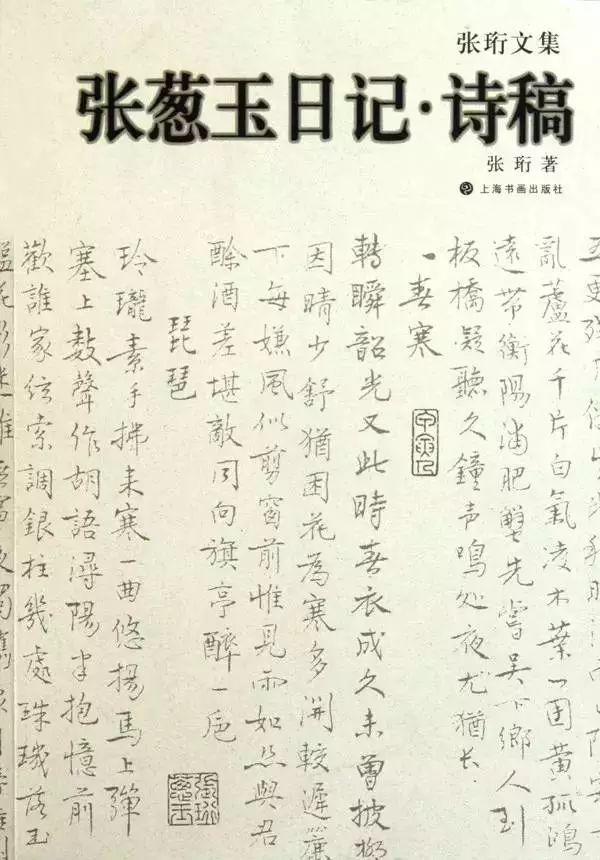 张珩文集
张葱玉日记·诗稿
张珩著
上海书画出版社
亂蘆花千片白氣凌木葉一園黃孤鴻
遠帶衡陽浦肥蟹先嘗吴下鄉人到
板橋疑聽久鐘声鳴处夜尤猶长
春寒
轉瞬韶光又此時春衣成久未曾披柳
因晴少舒猶困花為寒多開較遲簾
下每嫌風似剪窗前惟見雨如丝與君
酴酒差堪敵同向旗亭醉一巵
琵琶
玲瓏素手拂来寒一曲悠揚馬上彈
塞上數聲作胡語潯陽半抱憶前
歡誰家弦索調銀柱幾處珠璣落玉
張珩
蔥玉